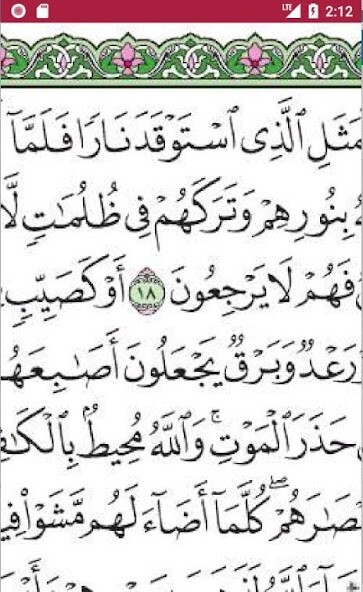 LTE 2:12
مثل الذي استوقد نارا فلما
بنورهم وتركهم في ظلمات لا
فهم لا يرجعون ١٨ أو كصيب
رعد وبرق يجعلون أصابعهم
حذر الموت ۚ والله محيط بالكاف
صارهم ۖ كلما أضاء لهم مشوا في